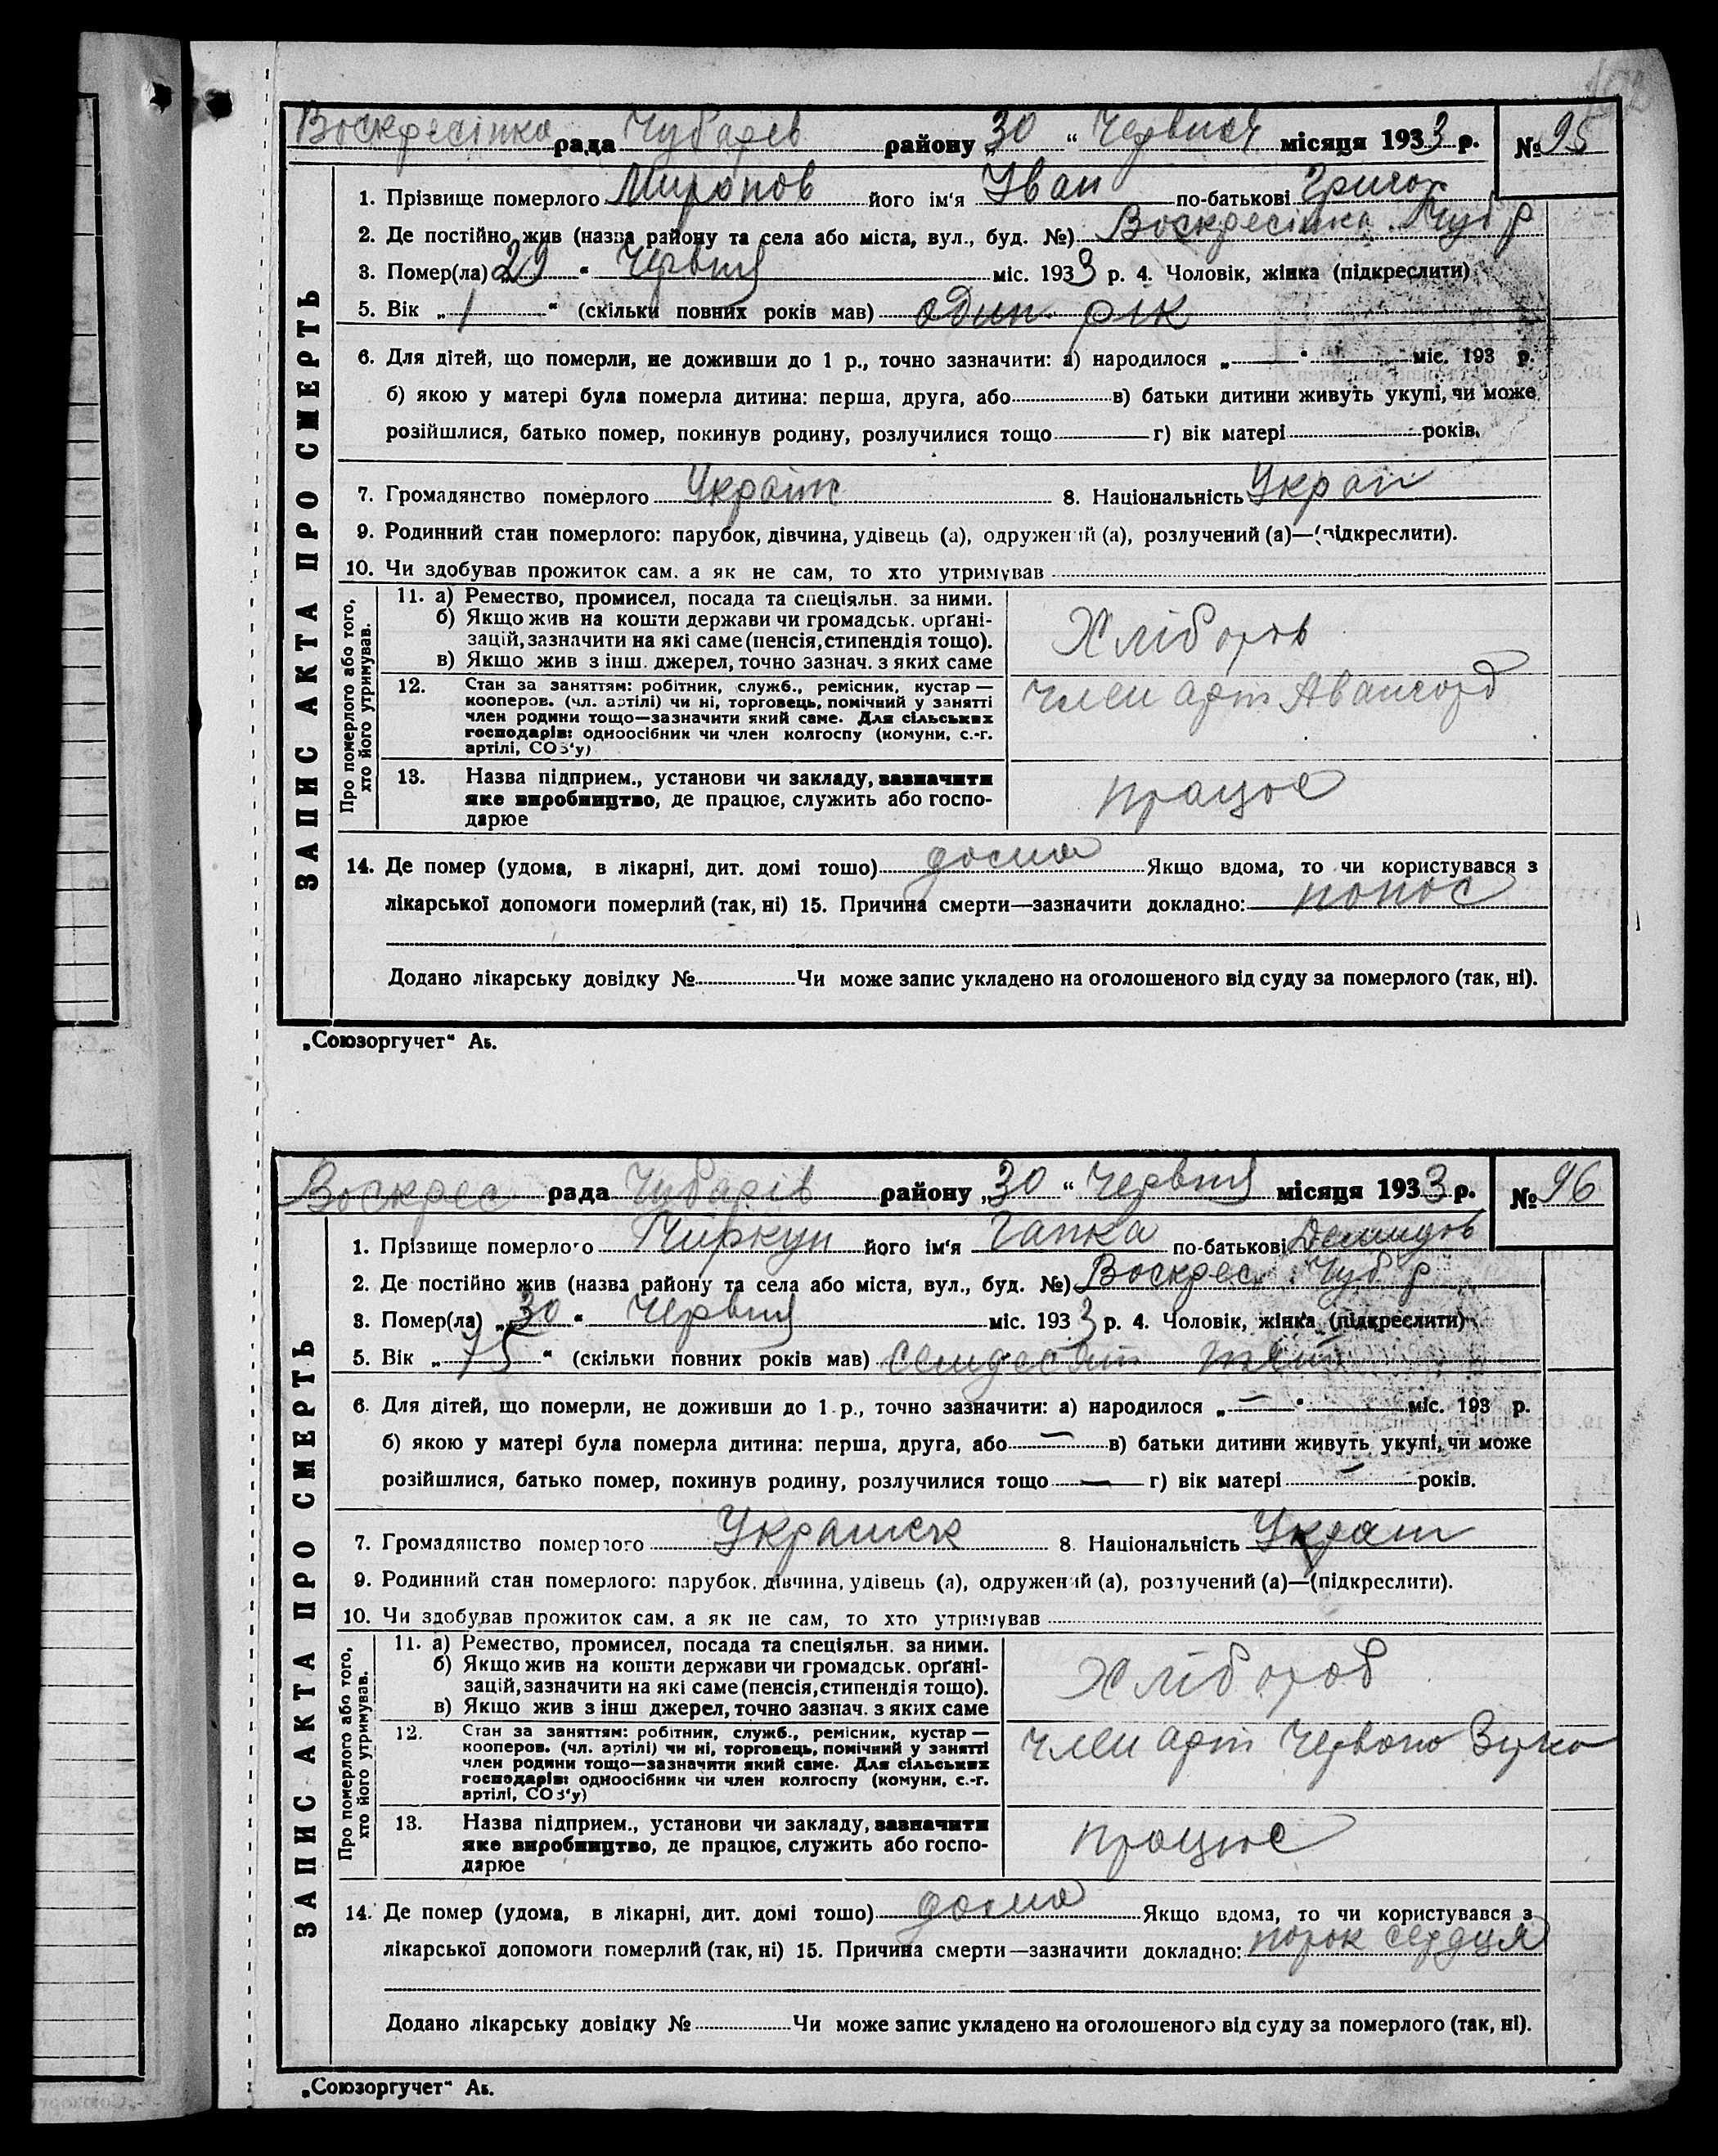 Воскресінка рада Чубарів району „30 “ Червня місяця 1933 р. № 95
1. Прізвище померлого Миронов його ім'я Іван по-батькові Григор
2. Де постійно жив (назва району та села або міста, вул., буд. №) Воскресінка Чуб р
3. Помер(ла) „29 “ Червня міс. 1933 р. 4. Чоловік, жінка (підкреслити)
5. Вік „ 1 “ (скільки повних років мав) один рік
6. Для дітей, що померли, не доживши до 1 р., точно зазначити: а) народилося „ “ міс. 193 р.
б) якою у матері була померла дитина: перша, друга, або в) батьки дитини живуть укупі, чи може
розійшлися, батько помер, покинув родину, розлучилися тощо г) вік матері років.
7. Громадянство померлого Україн 8. Національність Украін
9. Родинний стан померлого: парубок, дівчина, удівець (а), одружений (а), розлучений (а)—(підкреслити).
10. Чи здобував прожиток сам, а як не сам, то хто утримував
ЗАПИС АКТА ПРО СМЕРТЬ
Про померлого або того, хто його утримував.
11. а) Ремество, промисел, посада та спеціяльн. за ними.
б) Якщо жив на кошти держави чи громадськ. орґані-
зацій, зазначити на які саме (пенсія, стипендія тощо).
в) Якщо жив з інш. джерел, точно зазнач. з яких саме
Хлібороб
12. Стан за заняттям: робітник, служб., ремісник, кустар —
кооперов. (чл. артілі) чи ні, торговець, помічний у занятті
член родини тощо—зазначити який саме. Для сільських
господарів: одноосібник чи член колгоспу (комуни, с.-г.
артілі, СОЗ'у)
член арт Авангард
13. Назва підприєм., установи чи закладу, зазначити
яке виробництво, де працює, служить або госпо-
дарює
працює
14. Де помер (удома, в лікарні, дит. домі тощо) дома Якщо вдома, то чи користувався з
лікарської допомоги померлий (так, ні) 15. Причина смерти—зазначити докладно: понос
Додано лікарську довідку № Чи може запис укладено на оголошеного від суду за померлого (так, ні).
„Союзоргучет“ Аб.
Воскрес рада Чубарів району „30 “ Червня місяця 1933 р. № 96
1. Прізвище померлого його ім'я Гапка по-батькові Демидов
2. Де постійно жив (назва району та села або міста, вул., буд. №) Воскрес. Чуб р
3. Помер(ла) „30 “ Червня міс. 1933 р. 4. Чоловік, жінка (підкреслити)
5. Вік „ 75 “ (скільки повних років мав) семдесят пять
6. Для дітей, що померли, не доживши до 1 р., точно зазначити: а) народилося „ — “ міс. 193 р.
б) якою у матері була померла дитина: перша, друга, або — в) батьки дитини живуть укупі, чи може
розійшлися, батько помер, покинув родину, розлучилися тощо — г) вік матері — років.
7. Громадянство померлого Українск 8. Національність Україн
9. Родинний стан померлого: парубок, дівчина, удівець (а), одружений (а), розлучений (а)—(підкреслити).
10. Чи здобував прожиток сам, а як не сам, то хто утримував
ЗАПИС АКТА ПРО СМЕРТЬ
Про померлого або того, хто його утримував.
11. а) Ремество, промисел, посада та спеціяльн. за ними.
б) Якщо жив на кошти держави чи громадськ. орґані-
зацій, зазначити на які саме (пенсія, стипендія тощо).
в) Якщо жив з інш джерел, точно зазнач. з яких саме
Хлібороб
12. Стан за заняттям: робітник, служб., ремісник, кустар —
кооперов. (чл. артілі) чи ні, торговець, помічний у занятті
член родини тощо—зазначити який саме. Для сільських
господарів: одноосібник чи член колгоспу (комуни, с.-г.
артілі, СОЗ'у)
член арт Червона Зирка
13. Назва підприєм., установи чи закладу, зазначити
яке виробництво, де працює, служить або госпо-
дарює
працює
14. Де помер (удома, в лікарні, дит. домі тощо) дома Якщо вдома, то чи користувався з
лікарської допомоги померлий (так, ні) 15. Причина смерти—зазначити докладно: порок сердця
Додано лікарську довідку № Чи може запис укладено на оголошеного від суду за померлого (так, ні).
„Союзоргучет“ Аб.